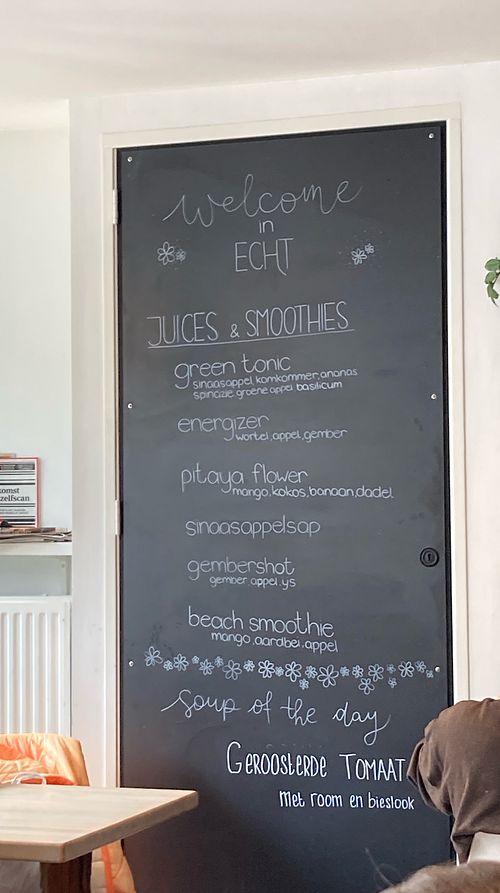 welcome
in
ECHT
JUICES & SMOOTHIES
green tonic
sinaasappel, komkommer, ananas
spinazie, groene appel basilicum
energizer
wortel, appel, gember
pitaya flower
mango, kokos, banaan, dadel
sinaasappelsap
gembershot
gember appel ys
beach smoothie
mango, aardbei, appel
soup of the day
GEROOSTERDE TOMAAT
met room en bieslook
komst
zelfscan